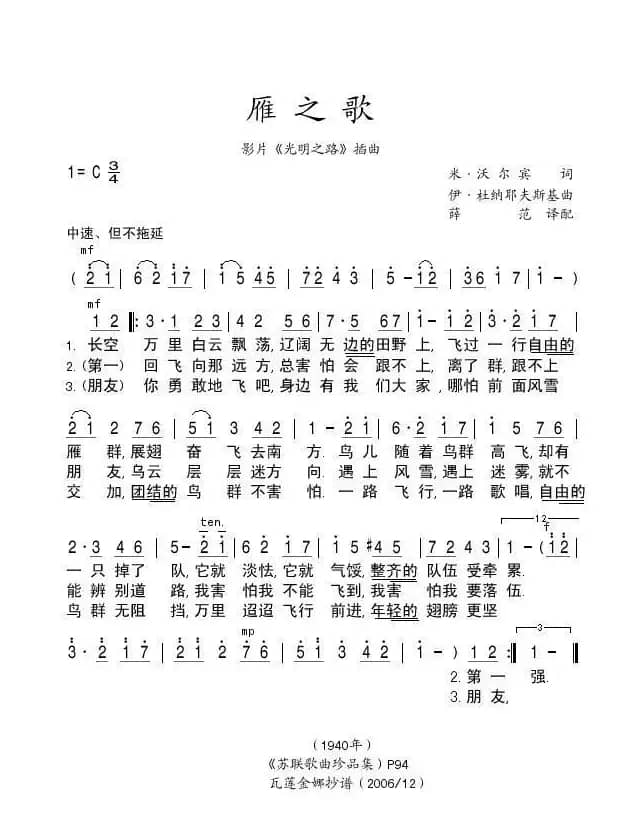 雁之歌
影片《光明之路》插曲
1=C 3/4
米·沃尔宾 词
伊·杜纳耶夫斯基曲
薛 范 译配
中速、但不拖延
mf
( 2 1 | 6 2 1 7 | 1 5 4 5 | 7 2 4 3 | 5 - 1 2 | 3 6 1 7 | 1 - )
mf
1 2 ‖: 3· 1 | 7 5 4 3 | 2 4 5 6 | 7· 5 6 7 | 4· 5 1 2 | 3· 2 1 7 |
1. 长空 万里白云飘荡,辽阔无边的田野上,飞过一行自由的
2.(第一) 回飞向那远方,总害怕会跟不上,离了群,跟不上
3.(朋友) 你勇敢地飞吧,身边有我们大家,哪怕前面风雪
2 1 2 7 6 | 5 5 1 3 | 3 4 2 | 1 - 2 1 | 6· 2 1 7 | 1 5 7 6 |
雁群,展翅奋飞去南方.鸟儿随着鸟群高飞,却有
朋友,乌云层层迷方向.遇上风雪,遇上迷雾,就不
交加,团结的鸟群不害怕.一路飞行,一路歌唱,自由的
ten.
12
f
2· 3 4 6 | 5 - 2 1 | 6 2 1 7 | 1 5 #4 5 | 7 2 4 3 | 1 - ( 1 2 |
一只掉了队,它就淡怯,它就气馁,整齐的队伍受牵累.
能辨别道路,我害怕我不能飞到,我害怕我要落伍.
鸟群无阻挡,万里迢迢飞行前进,年轻的翅膀更坚
mp
3
3· 2 1 7 | 2 1 2 7 6 | 5 1 4 3 | 1 - ) 1 2 :‖ 1 - ‖
2.第一 强.
3.朋友,
(1940年)
《苏联歌曲珍品集)P94
瓦莲金娜抄谱(2006/12)